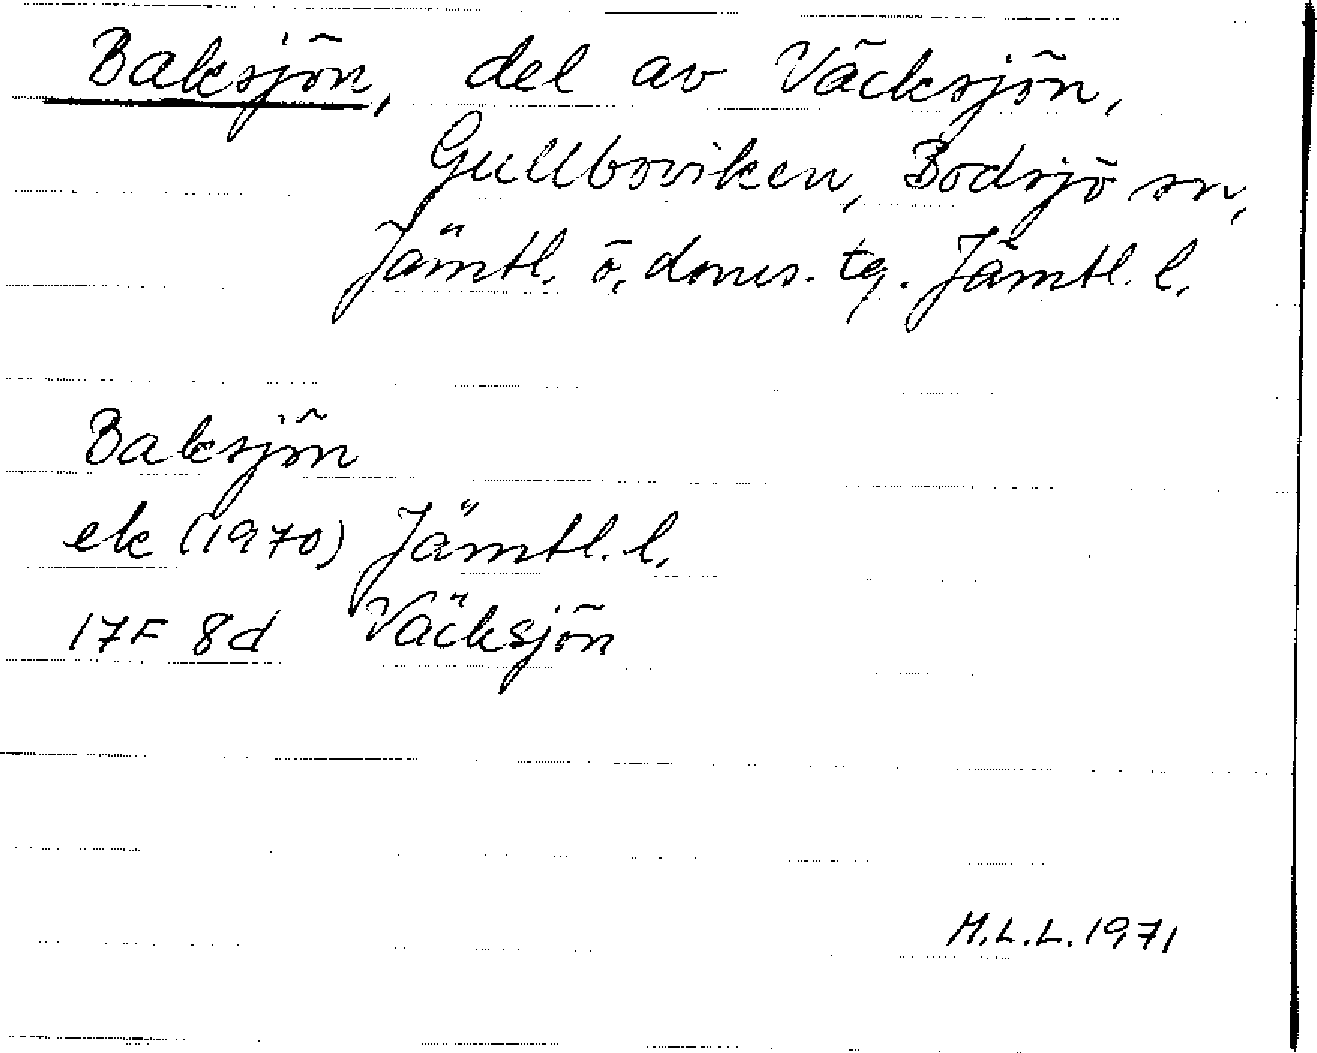 Baksjön, del av Väcksjön,
Gullboviken, Bodsjö sn,
Jämtl. ö. doms. tg. Jämtl. l.
Baksjön
ek (1970) Jämtl. l.
17F 8d Väcksjön
M.L.L. 1971